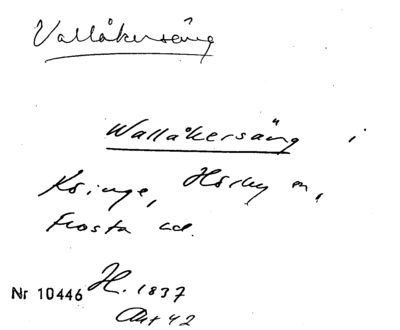 Vallåkersäng
Wallåkersäng i
Hörby sn,
Frosta hd.
Nr 10446 H. 1837
Akt 42